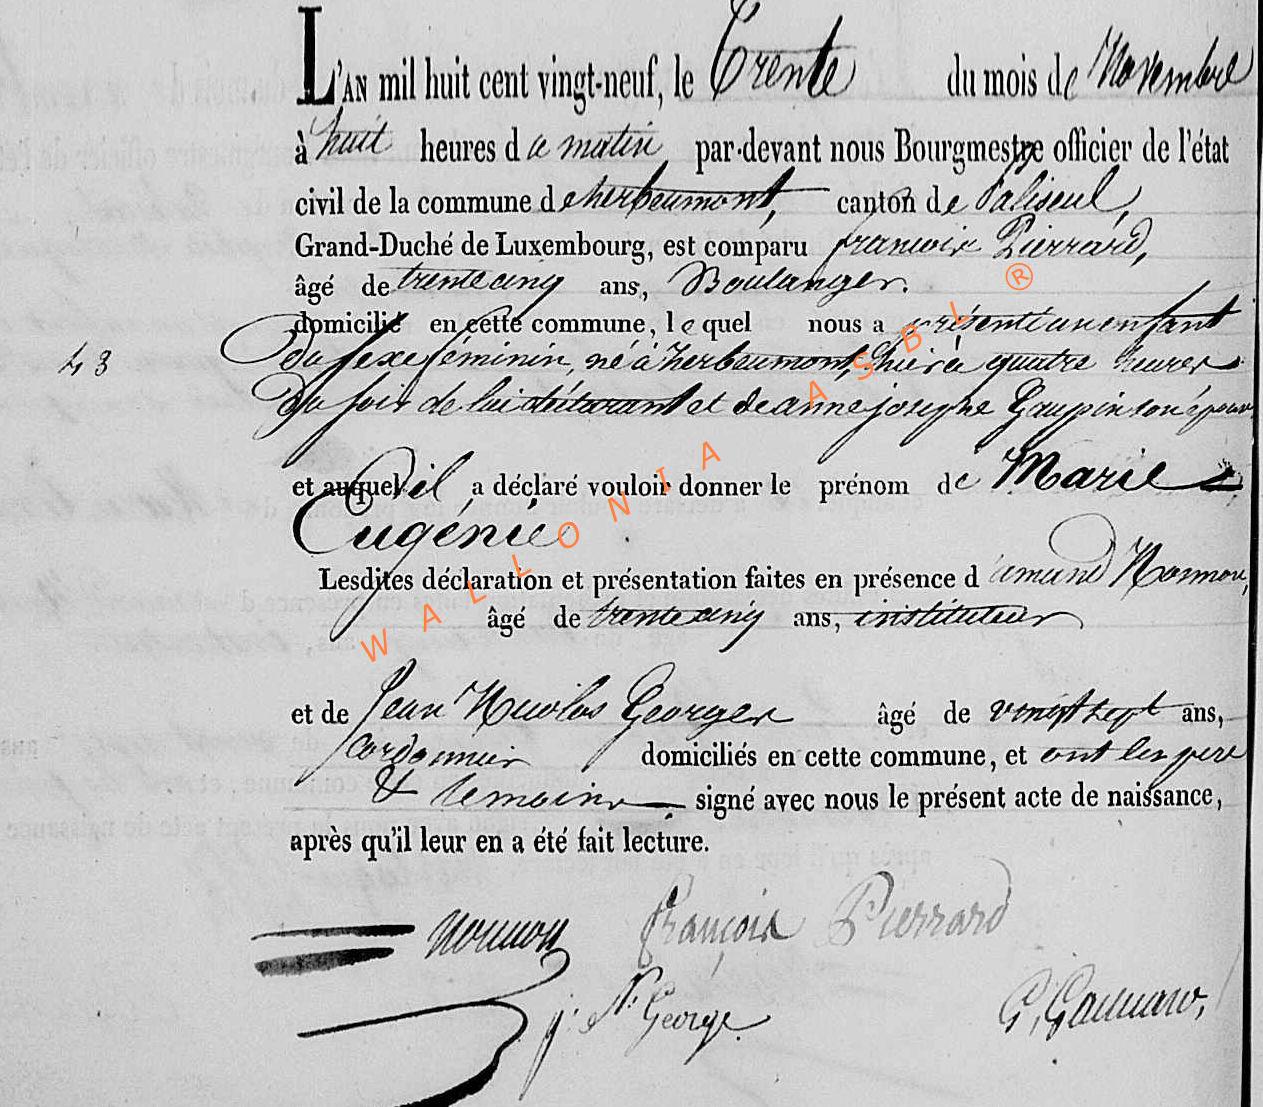 L'AN mil huit cent vingt-neuf, le Trente du mois de Novembre
à huit heures du matin par-devant nous Bourgmestre officier de l'état
civil de la commune de herbeumont, canton de Paliseul,
Grand-Duché de Luxembourg, est comparu francois Pierrard,
âgé de trente cinq ans, Boulanger.
domicilié en cette commune, lequel nous a présenté un enfant
43
du sexe féminin, né à herbeumont, hier à quatre heures
Du soir de lui déclarant et de anne josephe Gaupin son épouse
et auquel il a déclaré vouloir donner le prénom de Marie
Eugénie
Lesdites déclaration et présentation faites en présence d amand
âgé de trente cinq ans, instituteur
et de Jean Nicolas Georges âgé de vingt sept ans,
cordonnier domiciliés en cette commune, et ont les pere
& temoins signé avec nous le présent acte de naissance,
après qu'il leur en a été fait lecture.
françois Pierrard
j. N. George
WALLONIA ASBL ®